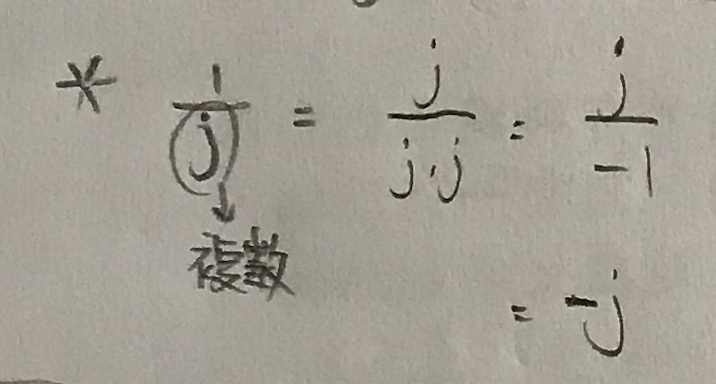 * 1/j = j/j·j = j/-1
↓
複数
= -j